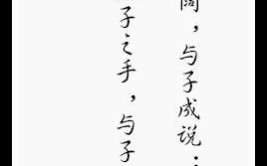 阔，与子成说；
子之手，与子